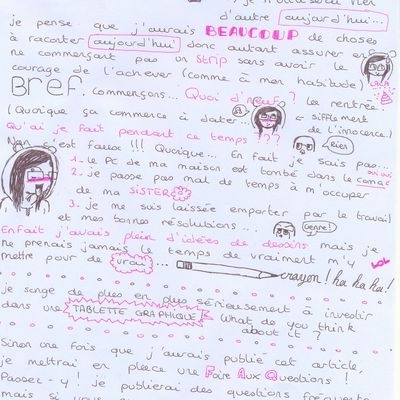 d'autre aujourd'hui...
je pense que j'aurais BEAUCOUP de choses
à raconter aujourd'hui donc autant assurer en
ne commençant pas un strip sans avoir le
courage de l'achever (comme à mon habitude)
Bref. Commençons... Quoi d'neuf? La rentrée
(Quoique ça commence à dater... ← sifflement de l'innocence)
Qu'ai je fait pendant ce temps ???
rien
Nan c'est faux!!! Quoique... En fait je sais pas...
1. le PC de ma maison est tombé dans le coma
2. je passe pas mal de temps à m'occuper
de ma SISTER
3. je me suis laissée emporter par le travail
et mes bonnes résolutions...
Genre!
Enfait j'avais plein d'idées de dessins mais je
ne prenais jamais le temps de vraiment m'y
mettre pour de
LOL
crayon! ha ha ha!
je songe de plus en plus sérieusement à investir
dans une TABLETTE GRAPHIQUE! What do you think about it?
Sinon une fois que j'aurais publié cet article,
je mettrai en place une Foire Aux Questions!
Passez-y! je publierai des questions
mais si vous